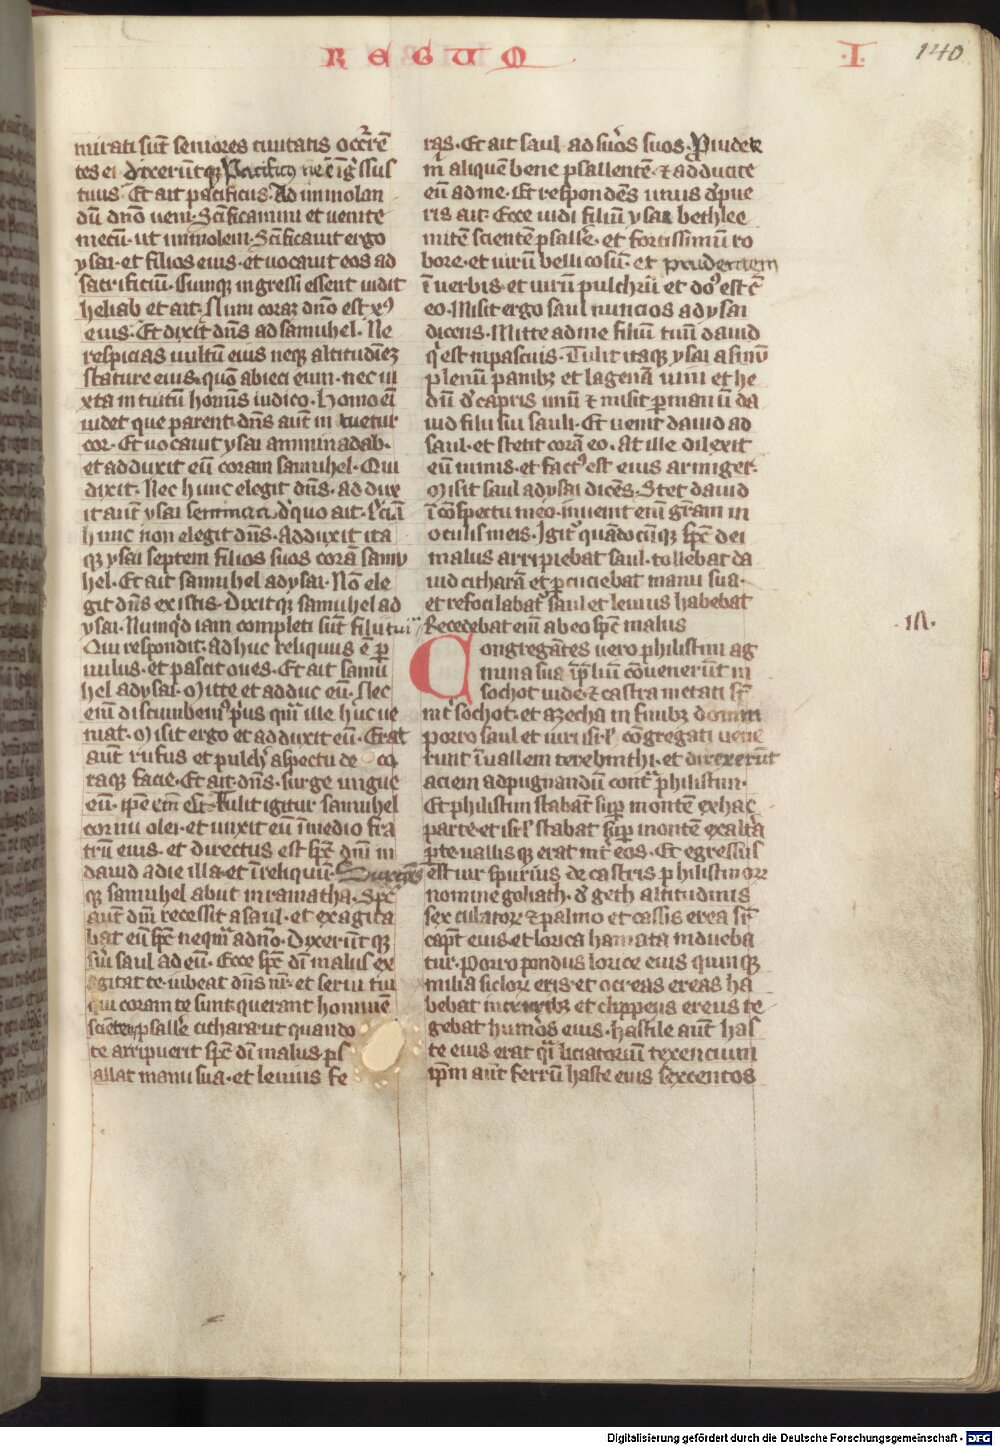 REGUM
.I.
140
mirati sūt seniores ciuitatis occ̄rē
tes ei dixerūtqꝫ Pacificus ne ē īḡssus
tuus Et ait pacificus Ad immolan
dū dn̄o ueni. Scīficamini et uenite
mecū. ut immolem. Scīficauit ergo
ysai. et filios eius. et uocauit eos ad
sacrificiū. Cumqꝫ ingressi essent uidit
heliab et ait. Num coram dn̄o est xꝰ
eius. Et dixit dn̄s ad samuhel. Ne
respicias uultū eius neqꝫ altitudinē
stature eius. quō abieci eum. nec iu
xta intuitū hominis iudico. Homo eī
uidet que parent. dn̄s aūt intuetur
cor. Et uocauit ysai aminadab.
et adduxit eū coram samuhel. Qui
dixit. Nec hunc elegit dn̄s. addux
it aūt ysai semma d̄ quo ait. Eciā
hunc non elegit dn̄s. Adduxit ita
qꝫ ysai septem filios suos corā samu
hel. Et ait samuhel ad ysai. Nō ele
git dn̄s ex istis. Dixitqꝫ samuhel ad
ysai. Numqͥd iam completi sūt filii tui
Qui respondit. adhuc reliquus ē p
uulus. et pascit oues. Et ait samu
hel ad ysai. Mitte et adduc eū. Nec
enī discumbemꝰ pͥus qm̄ ille huc ue
niat. Misit ergo et adduxit eū. Erat
aūt rufus et pulchꝰ aspectu deco
raqꝫ facie. Et ait dn̄s. surge ungue
eū. ip̄e enī est. Tulit igitur samuhel
cornu olei. et unxit eū ī medio fra
trū eius. et directus est sp̄c dn̄i in
dauid a die illa. et ī reliquū. Surgēs
qꝫ samuhel abiit in ramatha. Sp̄c
aūt dn̄i recessit a saul. et exagita
bat eū sp̄c neqm̄ a dn̄o. Dixerūtqꝫ
sui saul ad eū. Ecce sp̄c dī malus ex
agitat te. iubeat dn̄s nr̄. et serui tui
qui coram te sunt. querant hominē
scientē psalle cithara. ut quando
te arripuerit sp̄c dī malus. ps
allat manu sua. et leuius fe
ras. Et ait saul ad suos suos. Prouide
m̄ aliquē bene psallentē. et adducite
eū ad me. Et respondēs unus d̄ pue
ris ait. Ecce uidi filiū ysai bethlee
mitē scientē psalle. et fortissimū ro
bore. et uirū bellicosū. et prudentem
ī uerbis. et uirū pulchrū et dōs est c̄
eo. Misit ergo saul nuncios ad ysai
dicens. Mitte ad me filiū tuū dauid
qͥ est in pascuis. Tulit itaqꝫ ysai asinū
plenū panibꝫ et lagenā uini et he
dū d̄ capris unū et misit p manū da
uid filii sui sauli. Et uenit dauid ad
saul. et stetit corā eo. At ille dilexit
eū nimis. et factꝰ est eius armiger.
Misit saul ad ysai dicēs. Stet dauid
ī cōspectu meo. inuenit enī grām in
oculis meis. Igitͬ quādocūqꝫ sp̄c dei
malus arripiebat saul. tollebat da
uid citharā et pcuciebat manu sua.
et refocilabatͬ saul et leuius habebat
Recedebat enī ab eo sp̄c malus
Congregātes uero philistiim ag
mina sua ī p̄liū cōuenerūt in
sochot iude. et castra metati st̄
int̄ sochot. et azecha in finibꝫ domim
porro saul et uiri isrl̄ cōgregati uene
runt ī uallem terebinthi. et direxerūt
aciem ad pugnandū contͣ philistiim.
Et philistiim stabāt sup montē ex hac
parte. et isrl̄ stabat sup montē ex altͣa
p̄te. uallisqꝫ erat int̄ eos. Et egressus
est uir spurius de castris philistinorꝫ
nomine goliath. d̄ geth altitudinis
sex cubitorꝫ et palmo et cassis erea sr̄
caput eius. et lorica hamata indueba
tur. Porro pondus lorice eius quinqꝫ
milia siclorꝫ eris. et ocreas ereas ha
bebat in cruribꝫ et clippeus ereus te
gebat humos eius. hastile aūt has
te eius erat qͣi liciatorium texencium
ip̄m aūt ferrū haste eius sexcentos
Digitalisierung gefördert durch die Deutsche Forschungsgemeinschaft - DFG